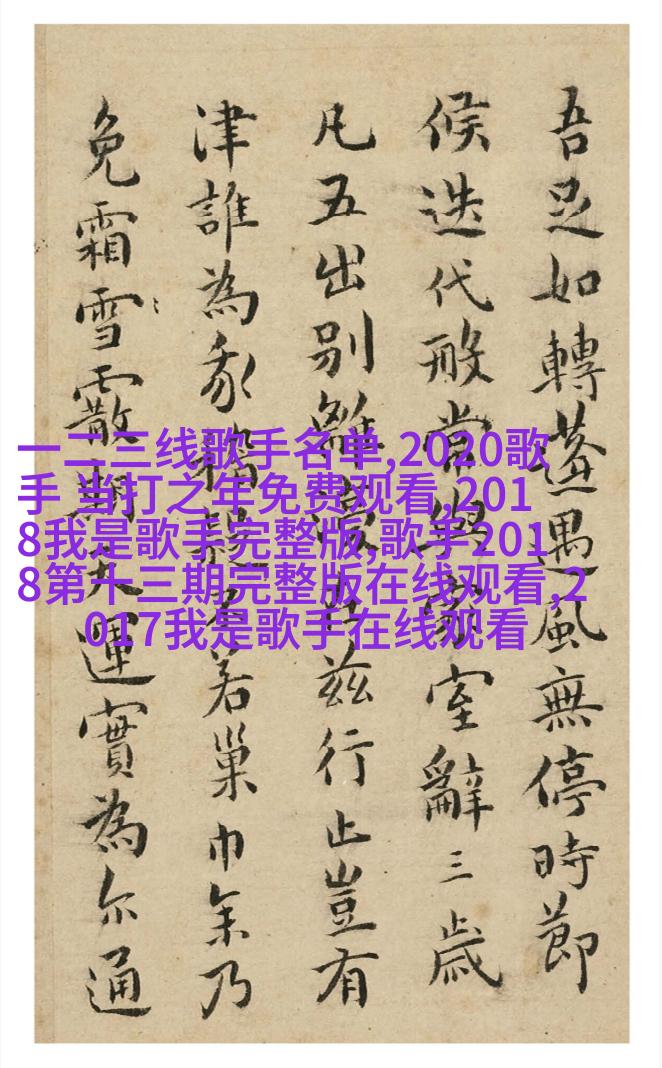 吾足如轉蓬遇風無停時節
候迭代般當室辭三歲
凡五出別離茲行止豈有
津誰為若巢巾余乃
免霜雪霰運實為尔通
一二三线歌手名单,2020歌
手 当打之年免费观看,201
8我是歌手完整版,歌手201
8第十三期完整版在线观看,2
017我是歌手在线观看